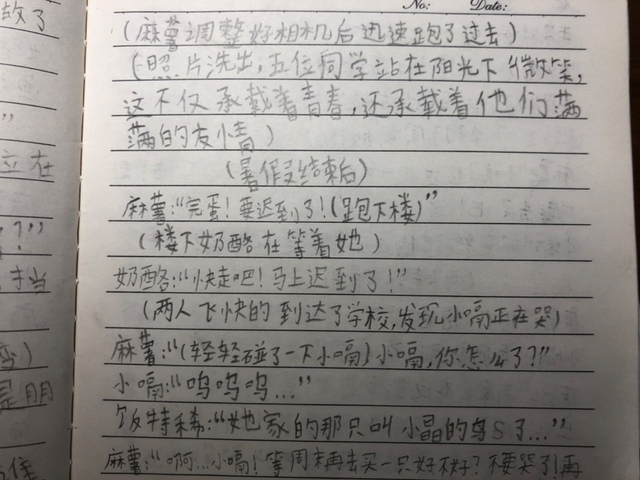 No: Date:
(麻薯调整好相机后迅速跑了过去)
(照片洗出,五位同学站在阳光下微笑,
这不仅承载着青春,还承载着他们满
满的友情)
(暑假结束后)
麻薯:“完蛋!要迟到了!(跑下楼)”
(楼下奶酪在等着她)
奶酪:“快走吧!马上迟到了!”
(两人飞快的到达了学校,发现小嗝正在哭)
麻薯:“(轻轻碰了一下小嗝)小嗝,你怎么了?”
小嗝:“呜呜呜...”
饭特稀:“她家的那只叫小晶的鸟S了...”
麻薯:“啊...小嗝!等周末再去买一只好不好?不要哭了!再
故了
”
立在
?”
才当
)
是朋